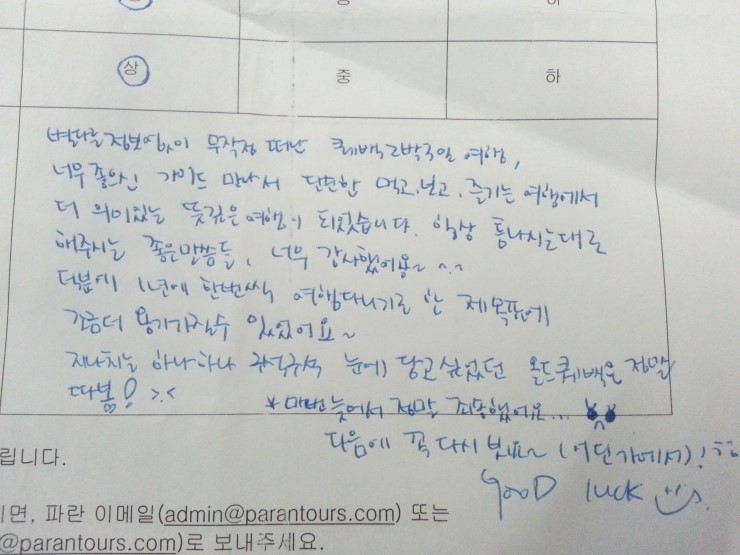 상 중 하
별다른 정보없이 무작정 떠난 퀘백 2박3일 여행,
너무 좋으신 가이드 만나서 단편한 먹고,보고,즐기는 여행에서
더 의미있는 뜻깊은 여행이 되었습니다. 항상 틈나시는대로
해주시는 좋은말씀들, 너무 감사했어용~ ^.^
덕분에 1년에 한번씩 여행다니기로 한 제 목표에
조금더 용기가질수 있었어요~
지나치는 하나하나 구석구석 눈에 담고싶었던 올드퀘백은 정말
따봉! >.<
*매번 늦어서 정말 죄송했어요...
다음에 꼭 다시 봐요~ (어딘가에서)!
GOOD luck
립니다.
면, 파란 이메일(admin@parantours.com) 또는
@parantours.com)로 보내주세요.